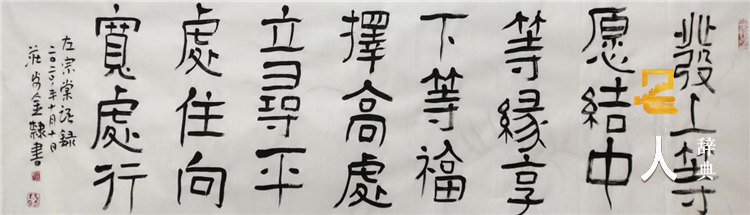 發上等
愿結中
等緣享
下等福
擇高處
立尋平
處住向
寬處行
左宗棠语録
二〇二〇年十月十日
莊金隸書
人辞典